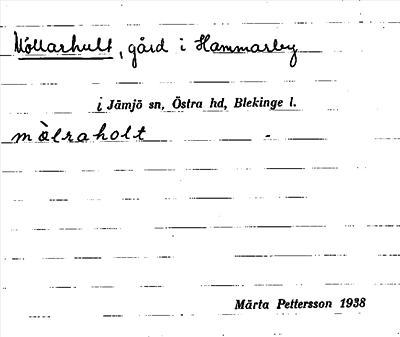 Möllarhult, gård i Hammarby
i Jämjö sn, Östra hd, Blekinge l.
mòlraholt -
Märta Pettersson 1938